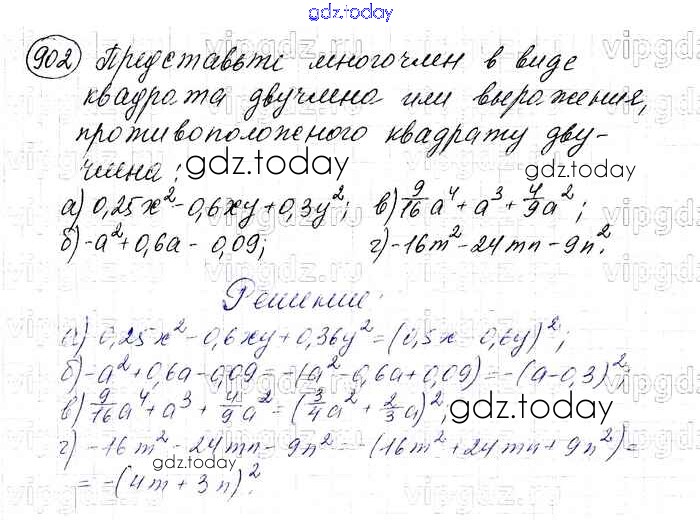 gdz.today
902 Представьте многочлен в виде
квадрата двучлена или выражения,
противоположного квадрату дву-
члена:
gdz.today
а) 0,25x² - 0,6xy + 0,3y²; в) 9/16 a⁴ + a³ + 4/9 a²;
б) -a² + 0,6a - 0,09; г) -16m² - 24mn - 9n².
Решение:
а) 0,25x² - 0,6xy + 0,36y² = (0,5x - 0,6y)²;
б) -a² + 0,6a - 0,09 = -(a² - 0,6a + 0,09) = -(a - 0,3)²;
в) 9/16 a⁴ + a³ + 4/9 a² = (3/4 a² + 2/3 a)²;
gdz.today
г) -16m² - 24mn - 9n² = -(16m² + 24mn + 9n²) =
= -(4m + 3n)².
gdz.today